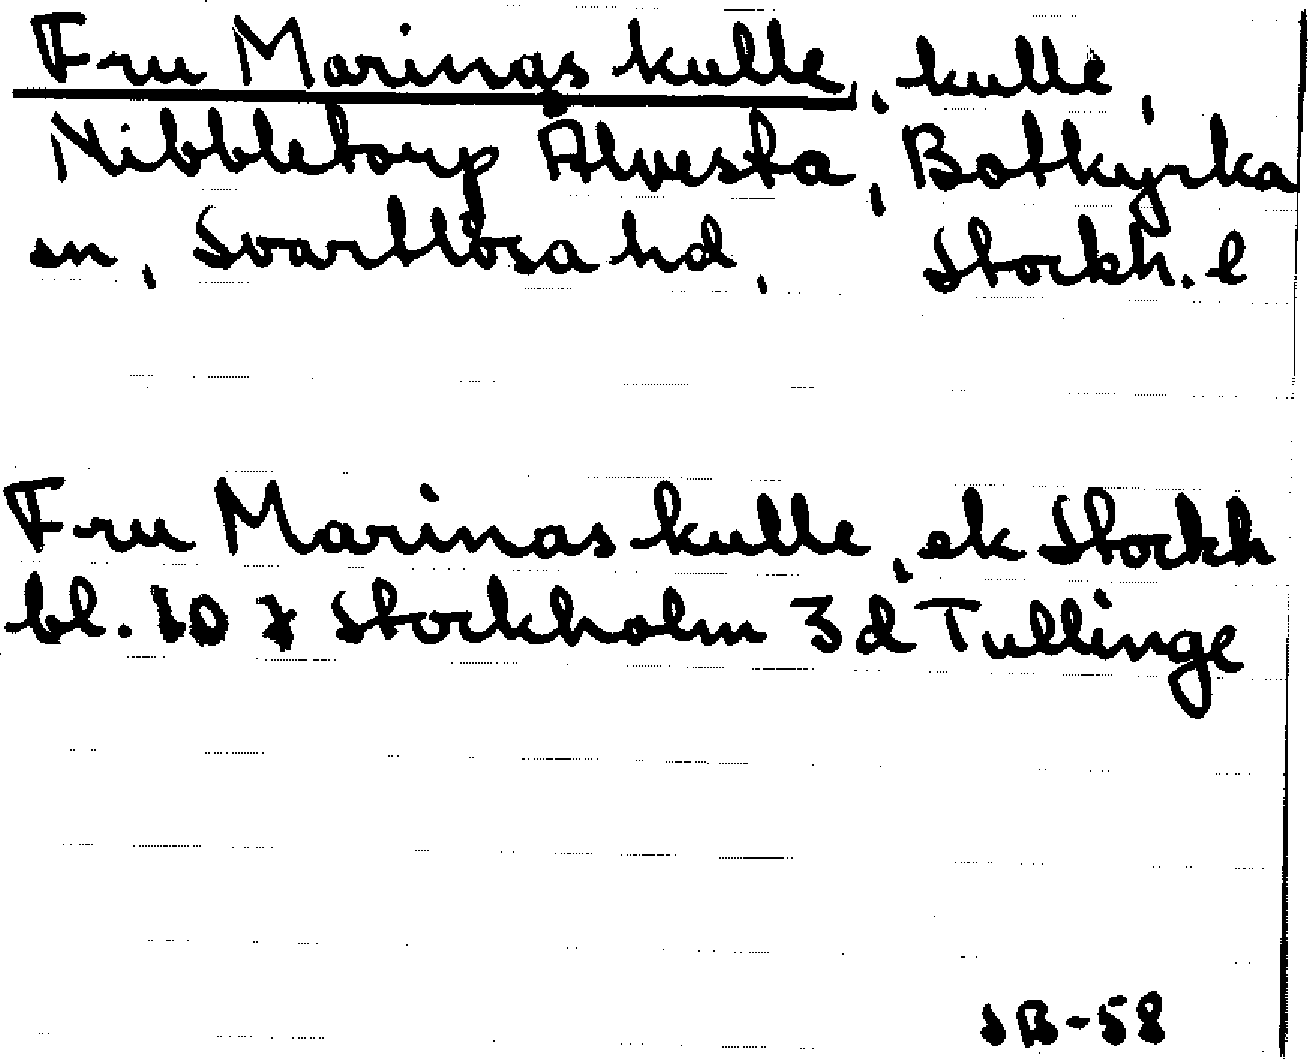 Fru Marinas kulle, kulle,
Nibbletorp Alvesta, Botkyrka
sn, Svartlösa hd, Stockh. l
Fru Marinas kulle, ek Stockh
bl. 10 7 Stockholm 3d Tullinge
SB-58